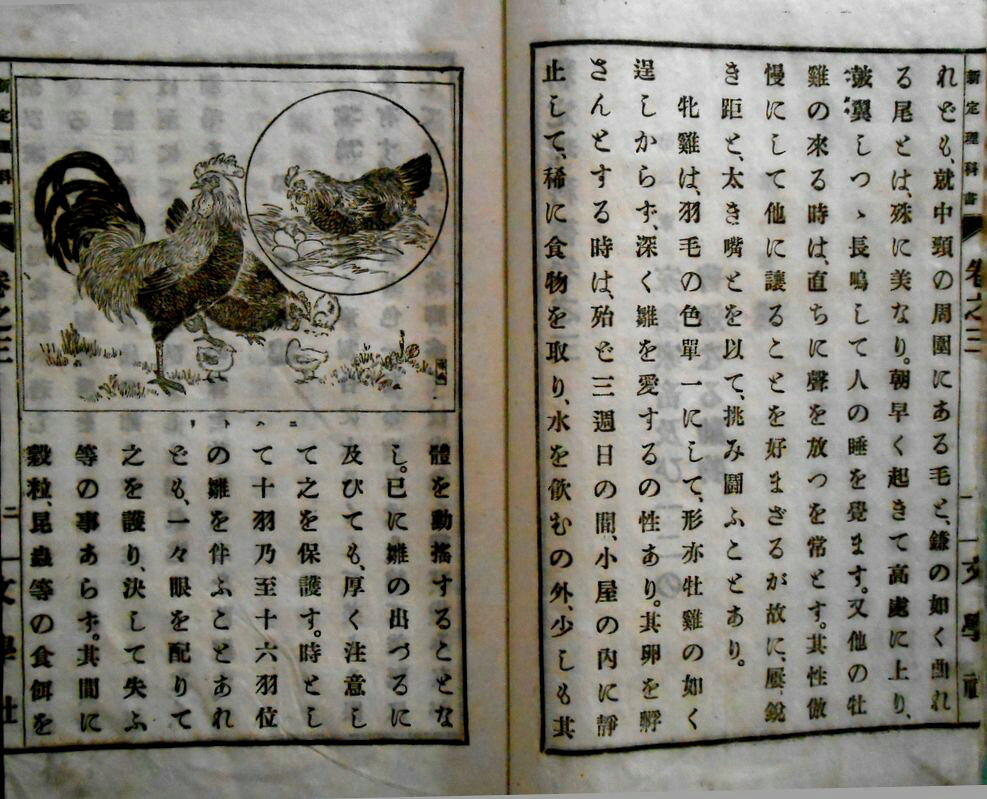 新定理科書 卷之三 一 文學社
れども、就中頸の周圍にある毛と、鎌の如く曲れ
る尾とは、殊に美なり。朝早く起きて高處に上り、
皷翼しつゝ長鳴して人の睡を覺ます。又他の牡
雞の來る時は、直ちに聲を放つを常とす。其性傲
慢にして他に讓ることを好まざるが故に、屡銳
き距と、太き嘴とを以て、挑み鬪ふことあり。
牝雞は、羽毛の色單一にして、形亦牡雞の如く
逞しからず、深く雛を愛するの性あり。其卵を孵
さんとする時は、殆ど三週日の間、小屋の内に靜
止して、稀に食物を取り、水を飮むの外、少しも其
にはとり
體を動搖することな
し。已に雛の出づるに
及びても、厚く注意し
て之を保護す。時とし
て十羽乃至十六羽位
の雛を伴ふことあれ
ども、一々眼を配りて
之を護り、決して失ふ
等の事あらず。其間に
穀粒、昆蟲等の食餌を
新定理科書 卷之三 二 文學社